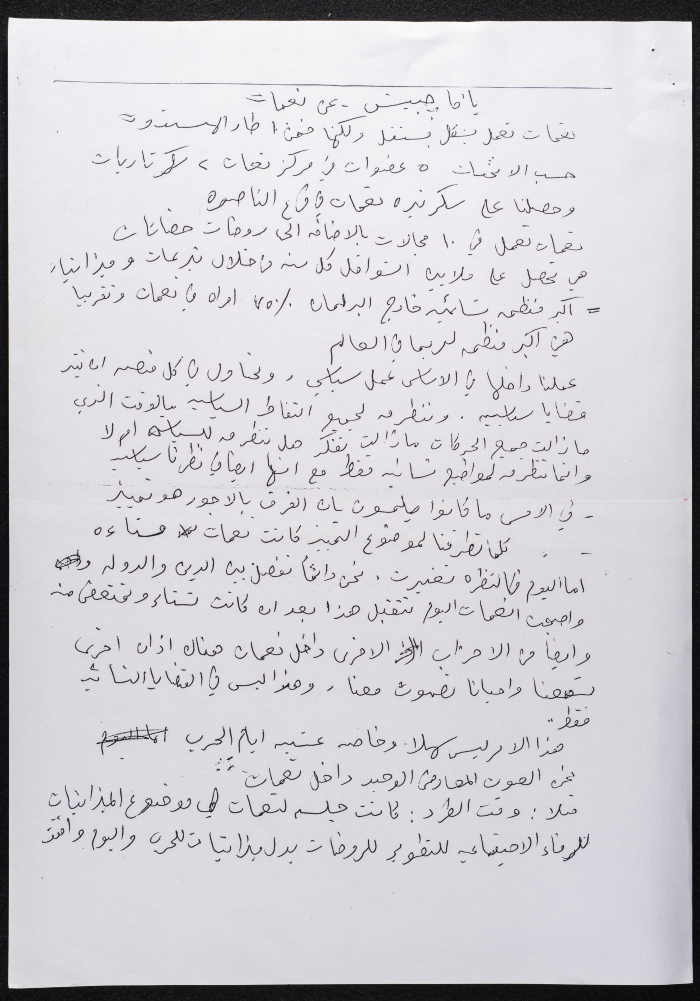 يافا چبيتش - عن نعمات =
نعمات تعمل بشكل مستقل ولكنها ضمن اطار الهستدروت =
حسب الانتخابات ٥ عضوات في مركز نعمات ٢ سكرتاريات
وحصلنا على سكرتيره نعمات في فرع الناصره
نعمات تعمل في ١٠ مجالات بالاضافه الى روضات حضانات
هي تحصل على ملايين الشواقل كل سنه من خلال تبرعات وميزانيات
= اكبر منظمه نسائيه خارج البرلمان ٧٥٠٪ امراه في نعمات وتقريبا
هي اكبر منظمه لربما في العالم
عملنا داخلها في الاساس عمل سياسي ، ونحاول في كل فرصه ان نثير
قضايا سياسيه . ونتطرق لجميع النقاط السياسيه بالوقت الذي
ما زالت جميع الحركات ما زالت تفكر هل نتطرق للسياسه ام لا
وانما نتطرق لمواضيع نسائيه فقط مع انها ايضا في نظرنا سياسيه
- في الامس ما كانوا يسلمون بان الفرق بالاجور هو تمييز
- " كلما تطرقنا لموضوع التمييز كانت نعمات مستاءه
اما اليوم فالنظره تغيرت . نحن دائما نفصل بين الدين والدوله
واصبحت نعمات اليوم تتقبل هذا بعد ان كانت تستاء وتمتعض منه
وايضا من الاحزاب الاخرى داخل نعمات هناك اذان اخرى
تسمعنا واحيانا تصوت معنا ، وهذا ليس في القضايا النسائيه
فقط "
هذا الامر ليس سهلا وخاصه عشيه ايام الحرب
نحن الصوت المعارض الوحيد داخل نعمات
مثلا : وقت الطرد : كانت جلسه لنعمات في موضوع الميزانيات
للرفاه الاجتماعيه للتطوير للروضات بدل ميزانيات للحرب واليوم